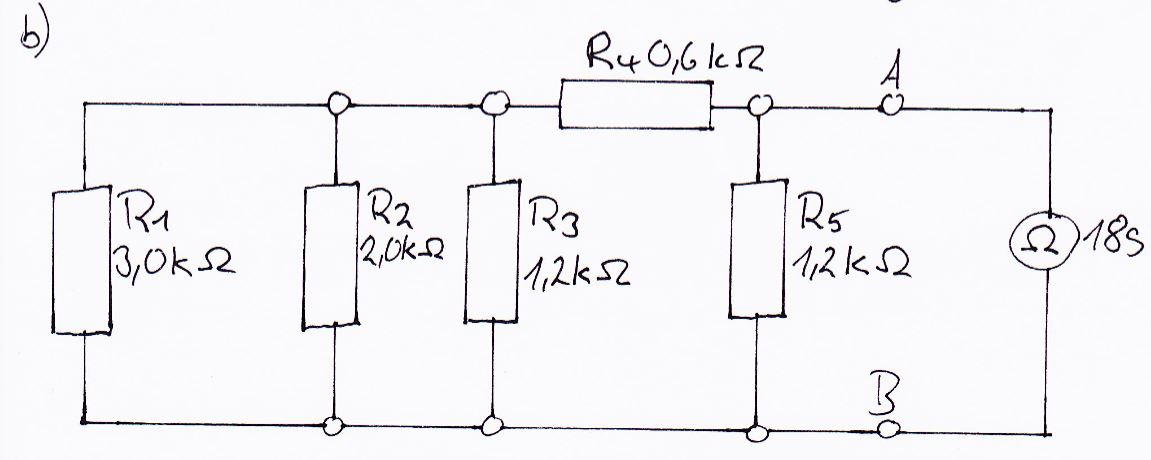 b)
R4 0,6kΩ
A
R1
3,0kΩ
R2
2,0kΩ
R3
1,2kΩ
R5
1,2kΩ
Ω
B